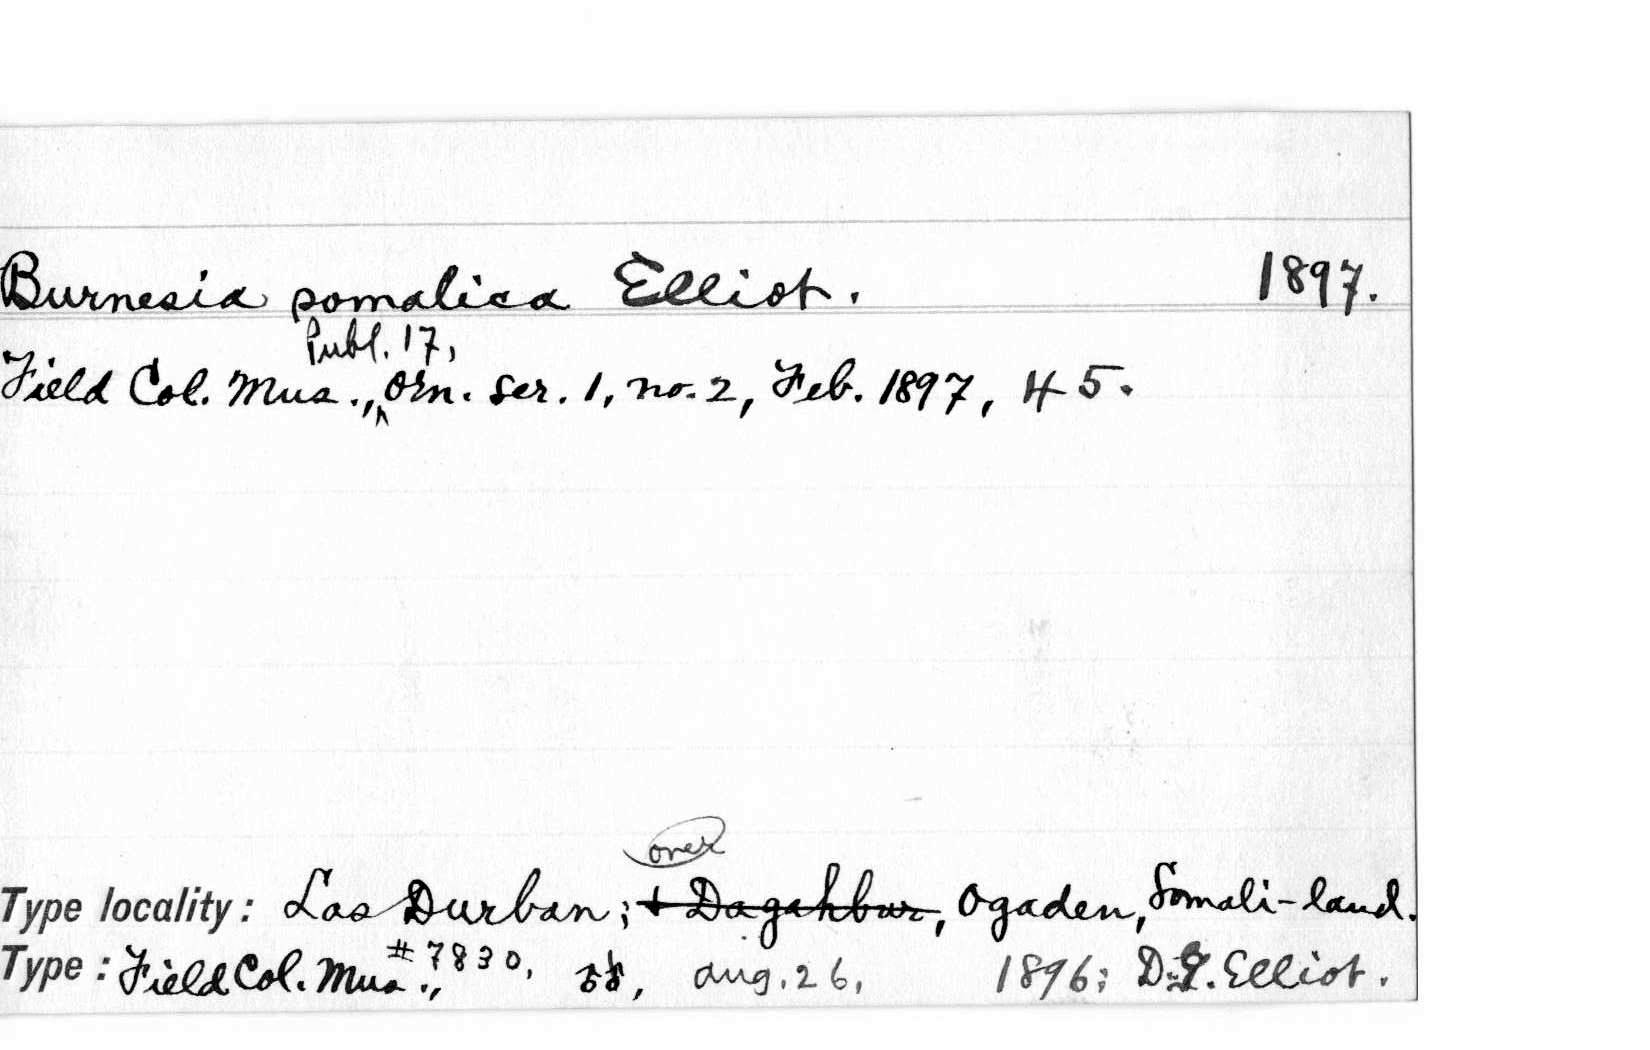 Burnesia somalica Elliot. 1897.
Publ. 17,
Field Col. Mus., Orn. Ser. 1, no. 2, Feb. 1897, 45.
over
Type locality: Las Durban; + Dagahbur, Ogaden, Somali-land.
Type: Field Col. Mus., #7830, Aug. 26, 1896; D.G. Elliot.